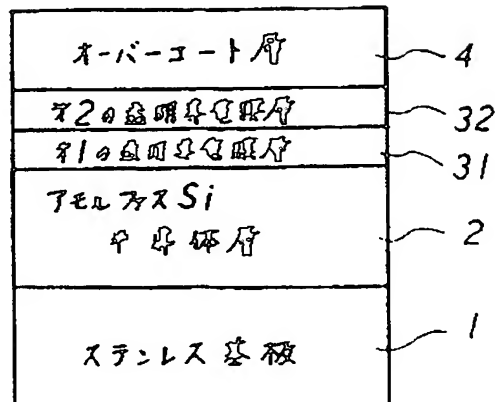 オーバーコート層 4
第2の透明導電膜層 32
第1の透明導電膜層 31
アモルファスSi
半導体層 2
ステンレス基板 1